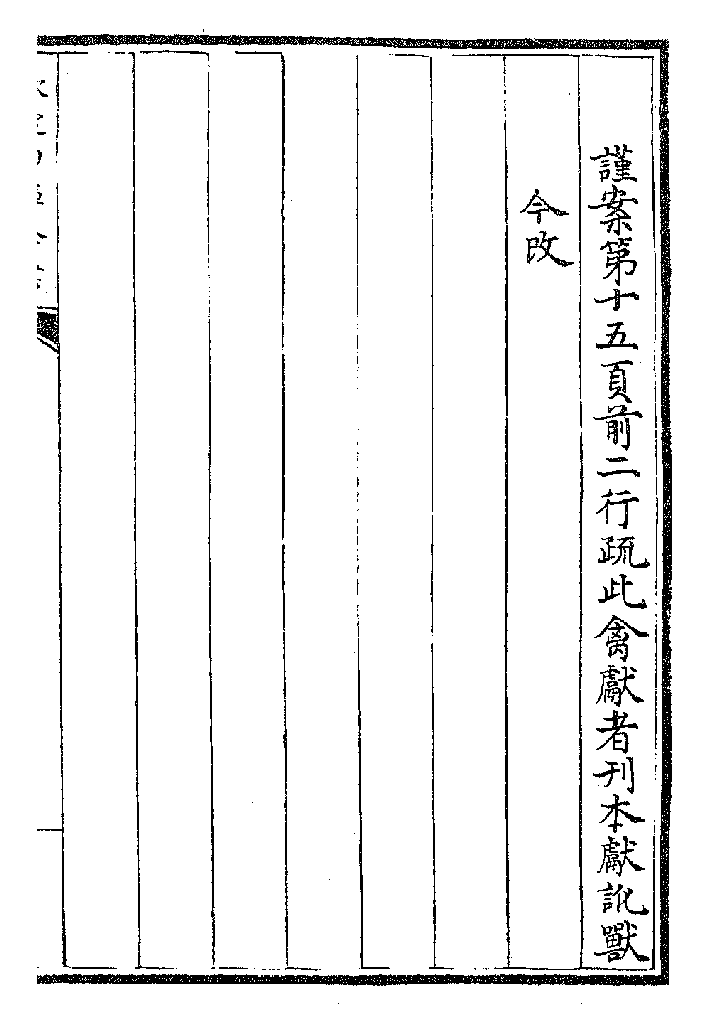 謹案第十五頁前二行疏此禽獻者刊本獻訛獸
今改